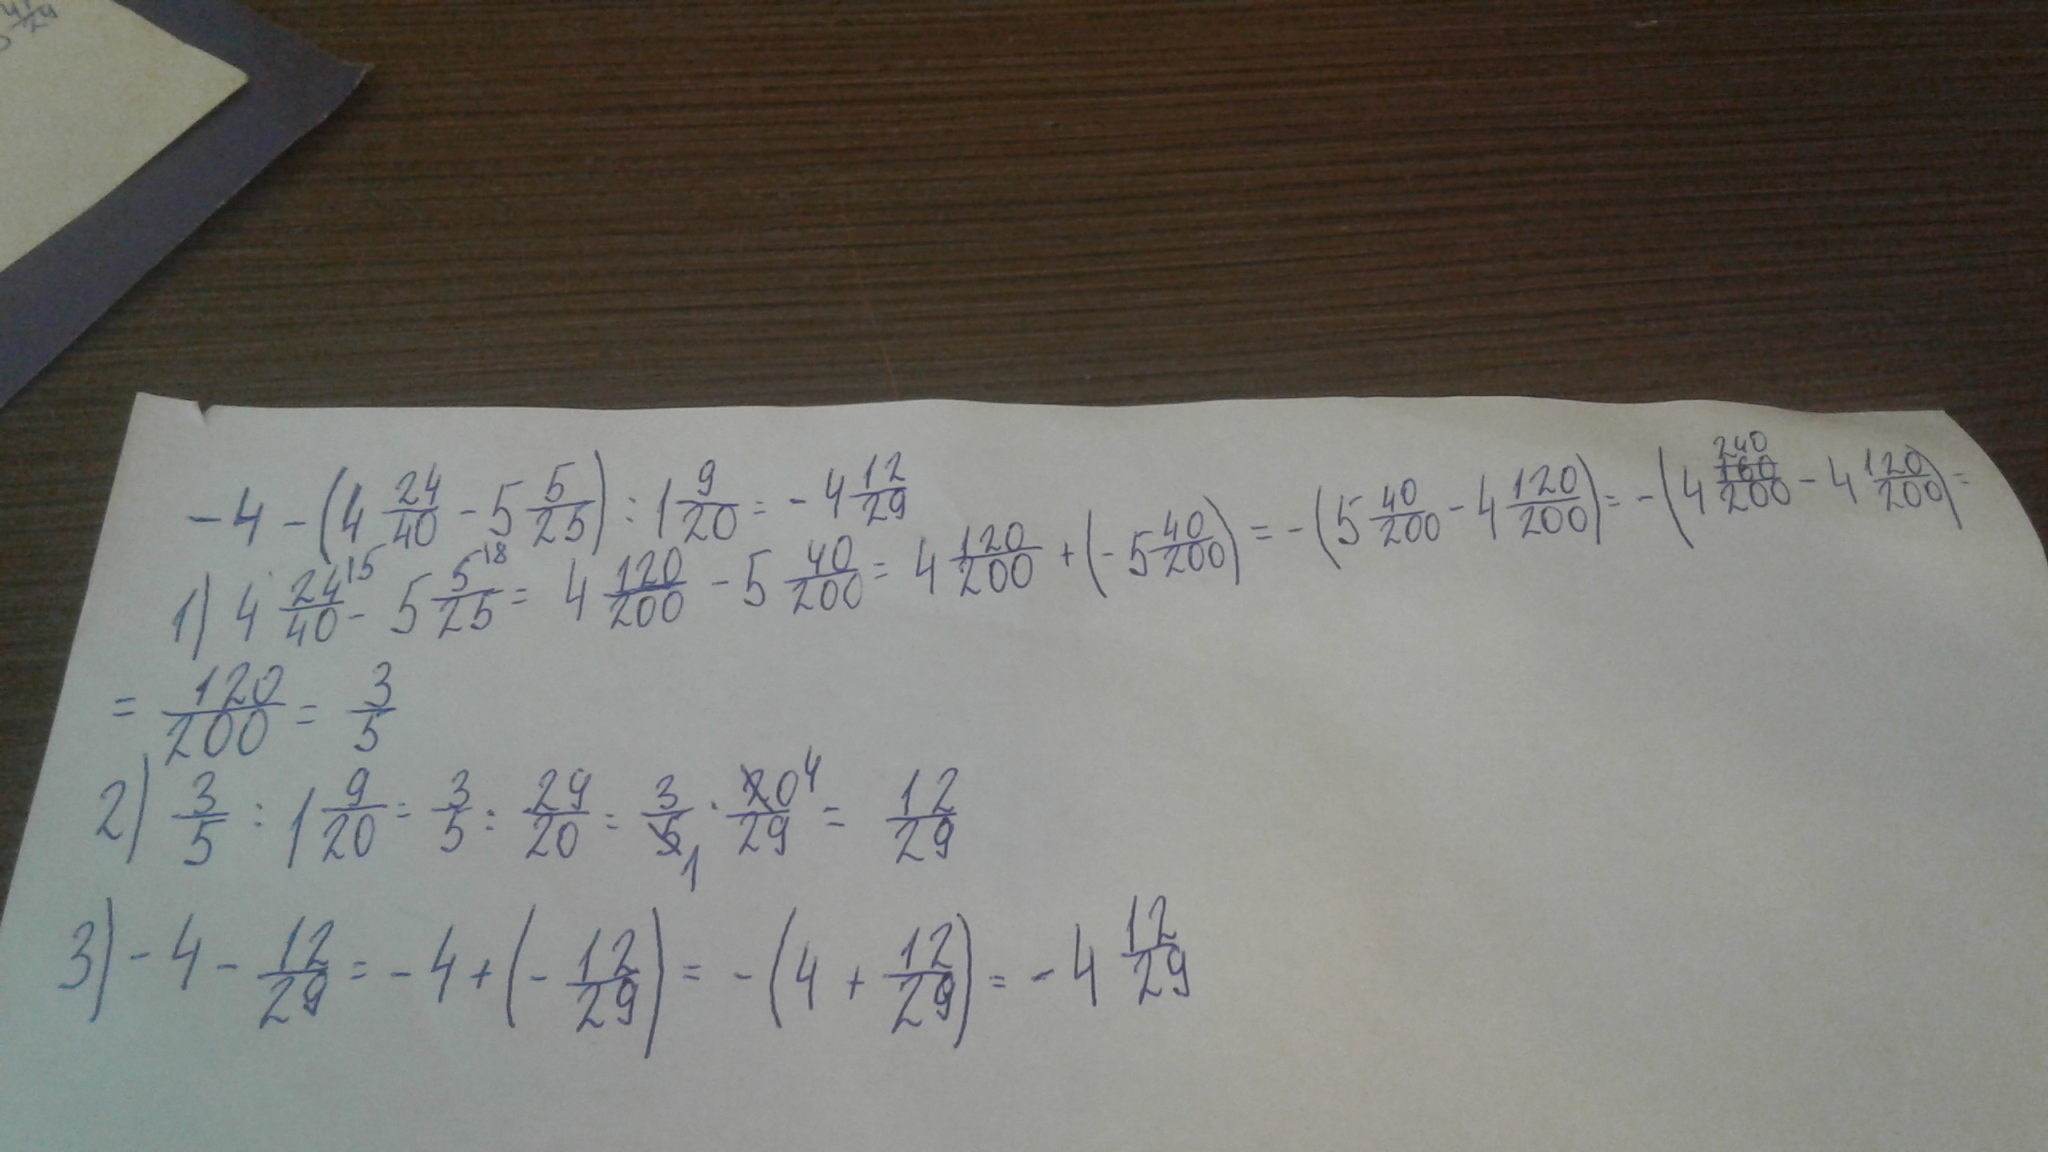 -4 - (4 24/40 - 5 5/25) : 1 9/20 = -4 12/29
1) 4 24/40 15 - 5 5/25 18 = 4 120/200 - 5 40/200 = 4 120/200 + (-5 40/200) = -(5 40/200 - 4 120/200) = -(4 240/200 - 4 120/200) =
= 120/200 = 3/5
2) 3/5 : 1 9/20 = 3/5 : 29/20 = 3/5 1 · 20/29 4 = 12/29
3) -4 - 12/29 = -4 + (-12/29) = -(4 + 12/29) = -4 12/29